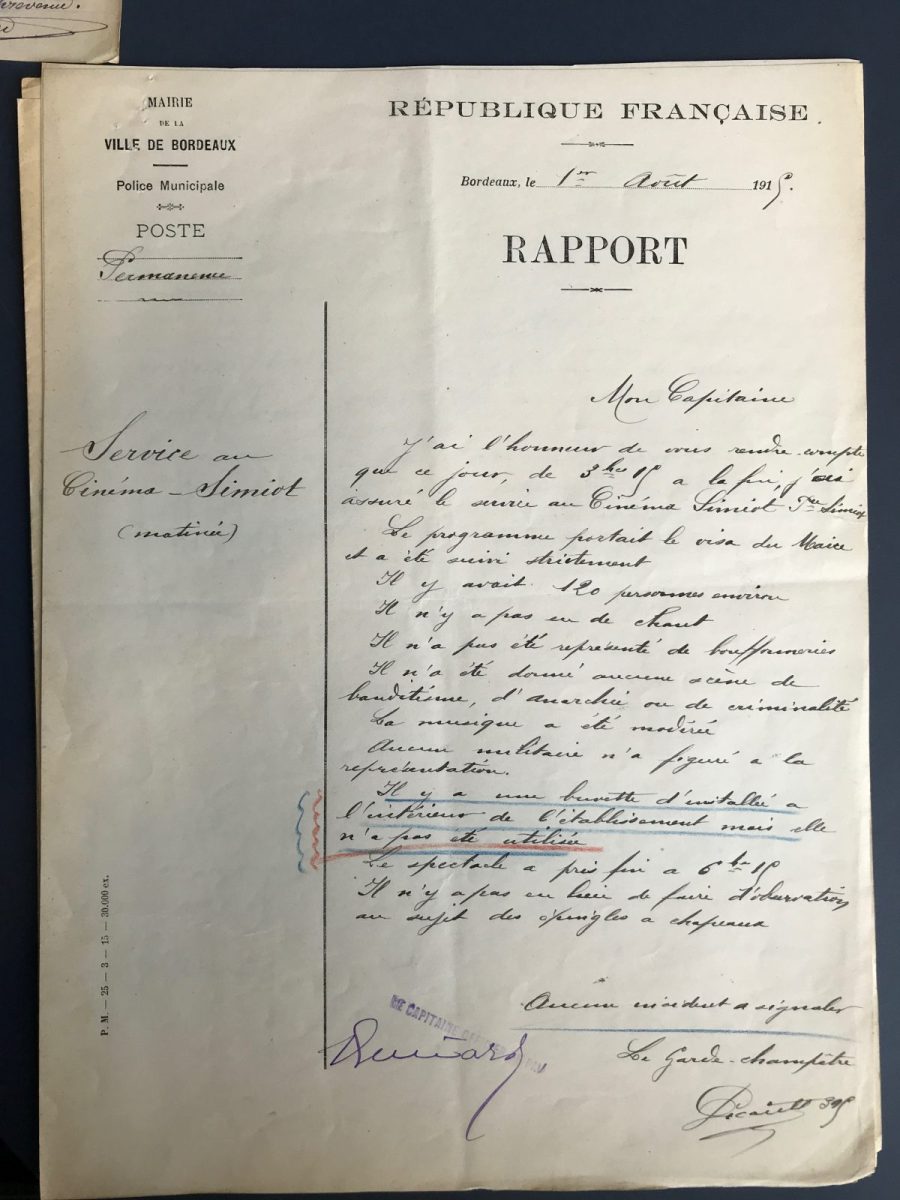 revenu.
MAIRIE
DE LA
VILLE DE BORDEAUX
Police Municipale
POSTE
Permanence
RÉPUBLIQUE FRANÇAISE
Bordeaux, le 1er Août 1915.
RAPPORT
Service au
Cinéma - Simiot
(matinée)
Mon Capitaine
J'ai l'honneur de vous rendre compte
que ce jour, de 3 hes 15 a la fin, j'ai
assuré le service au Cinéma Simiot Simiot
Le programme portait le visa du Maire
et a été suivi strictement
Il y avait 120 personnes environ
Il n'y a pas eu de chant
Il n'a pas été représenté de bouffonneries
Il n'a été donné aucune scène de
banditisme, d'anarchie ou de criminalité
La musique a été modérée
Aucun militaire n'a figuré a la
représentation.
Il y a une buvette d'installée a
l'intérieur de l'établissement mais elle
n'a pas été utilisée
Le spectacle a pris fin a 6 hes 15
Il n'y a pas eu lieu de faire d'observation
au sujet des épingles a chapeaux
Aucun incident a signaler
Le Garde-champêtre
395
LE CAPITAINE
P. M. — 25 — 3 — 15 — 30.000 ex.